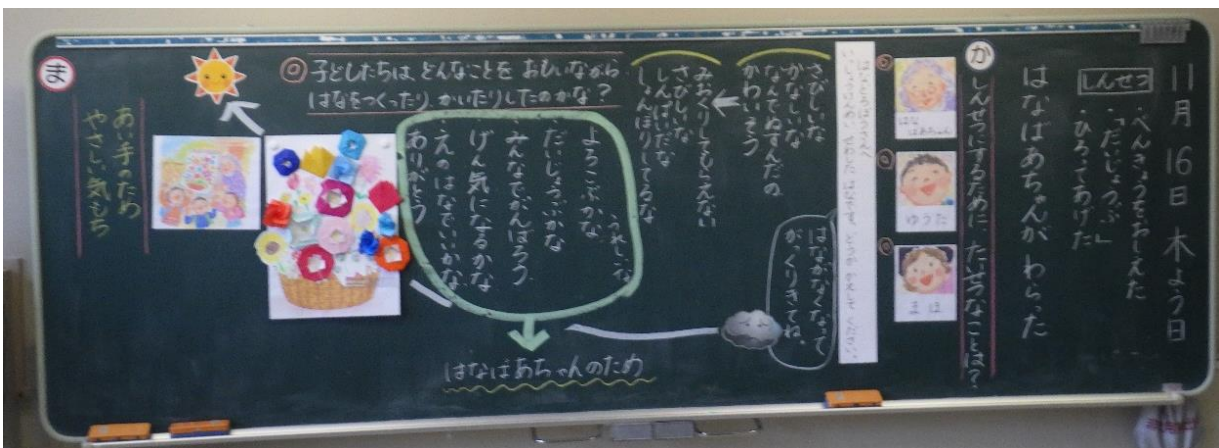 11月16日 木よう日
しんせつ
・べんきょうをおしえた
・「だいじょうぶ」
・ひろってあげた
はなばあちゃんが わらった
か
しんせつにするために、たいせつなことは？
はな
ばあちゃん
ゆうた
まほ
さびしいな
かなしいな
なんでぬすんだの
かわいそう
はながなくなって
がっくりきてね。
みおくりしてもらえない
さびしいな
しんぱいだな
しょんぼりしてるな
◎子どもたちは、どんなことを おもいながら
はなをつくったり、かいたりしたのかな？
うれしいな
よろこぶかな
だいじょうぶかな
みんなでがんばろう
げん気になるかな
えのはなでいいかな
ありがとう
はなばあちゃんのため
ま
あい手のため
やさしい気もち